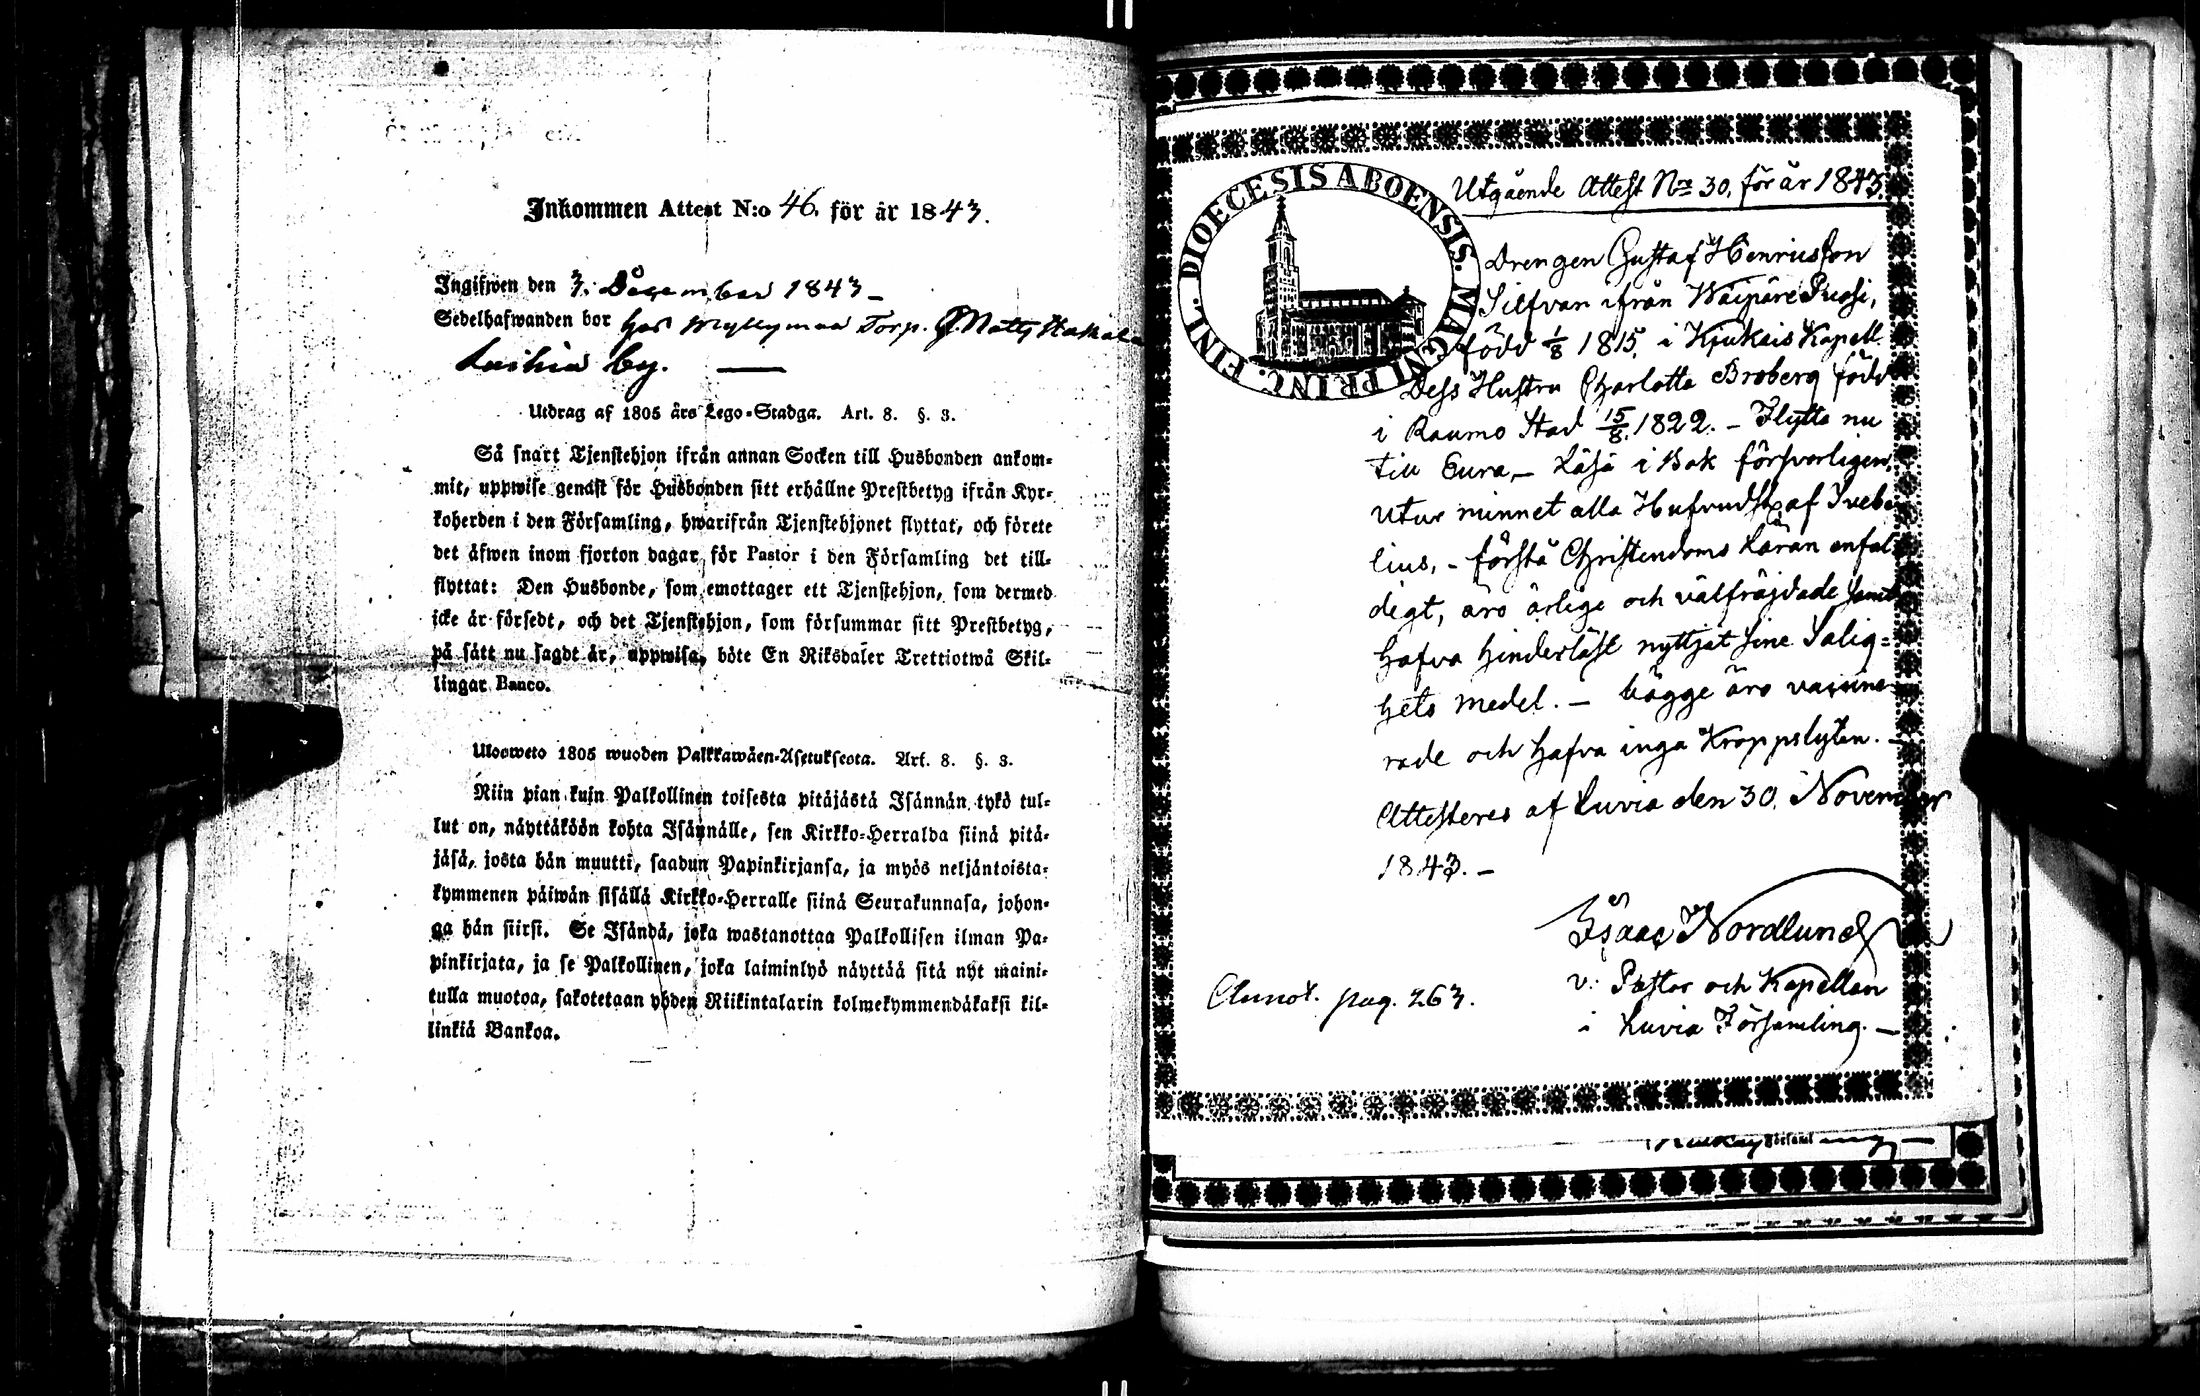 Inkommen Attest N:o 46. för år 1843.
Ingifwen den 3. December 1843 –
Sedelhafwanden bor hos Myllymaa Torp.
Luihia by. —
Utdrag af 1805 års Lego-Stadga. Art. 8. §. 3.
Så snart Tjenstehjon ifrån annan Socken till Husbonden ankom-
mit, uppwise genast för Husbonden sitt erhållne Prestbetyg ifrån Kyr-
koherden i den Församling, hwarifrån Tjenstehjonet flyttat, och förete
det äfwen inom fjorton dagar för Pastor i den Församling det till-
flyttat: Den Husbonde, som emottager ett Tjenstehjon, som dermed
icke är försedt, och det Tjenstehjon, som försummar sitt Prestbetyg,
på sätt nu sagdt är, uppwisa, böte En Riksdaler Trettiotwå Skil-
lingar Banco.
Ulosweto 1805 wuoden Palkkawäen-Asetuksesta. Art. 8. §. 3.
Niin pian kuin Palkollinen toisesta pitäjästä Isännän tykö tul-
lut on, näyttäköön kohta Isännälle, sen Kirkko-Herralda siinä pitä-
jäsä, josta hän muutti, saadun Papinkirjansa, ja myös neljäntoista-
kymmenen päiwän sisällä Kirkko-Herralle siinä Seurakunnasa, johon-
ga hän siirsi. Se Isändä, joka wastanottaa Palkollisen ilman Pa-
pinkirjata, ja se Palkollinen, joka laiminlyö näyttää sitä nyt maini-
tulla muotoa, sakotetaan yhden Riikintalarin kolmekymmendäkaksi kil-
linkiä Bankoa.
DIOECESIS ABOENSIS. MAGNI PRINC. FINL.
Utgående Attest No 30. för år 1843.
Drengen Gustaf Henricsson
Silfvan ifrån Wäipäre Puosi,
född 1/8 1815, i Kjukais Kapell
Dess Hustru Charlotta Broberg född
i Raumo Stad 15/8 1822. – Flytta nu
till Eura, – Läsa i Bok försvarligen,
utur minnet alla Hufvudst. af Svebe-
lius, – förstå Christendoms Läran enfal-
digt, äro ärlige och välfräjdade samt
hafva hinderlöst nyttjat sine Salig-
hets medel. – bägge äro vaccine-
rade och hafva inga Kroppslyten. –
Attesteres af Luvia den 30. November
1843. –
Isaac Nordlund
v. Pastor och Kapellan
i Luvia Församling. –
Annot. pag. 263.